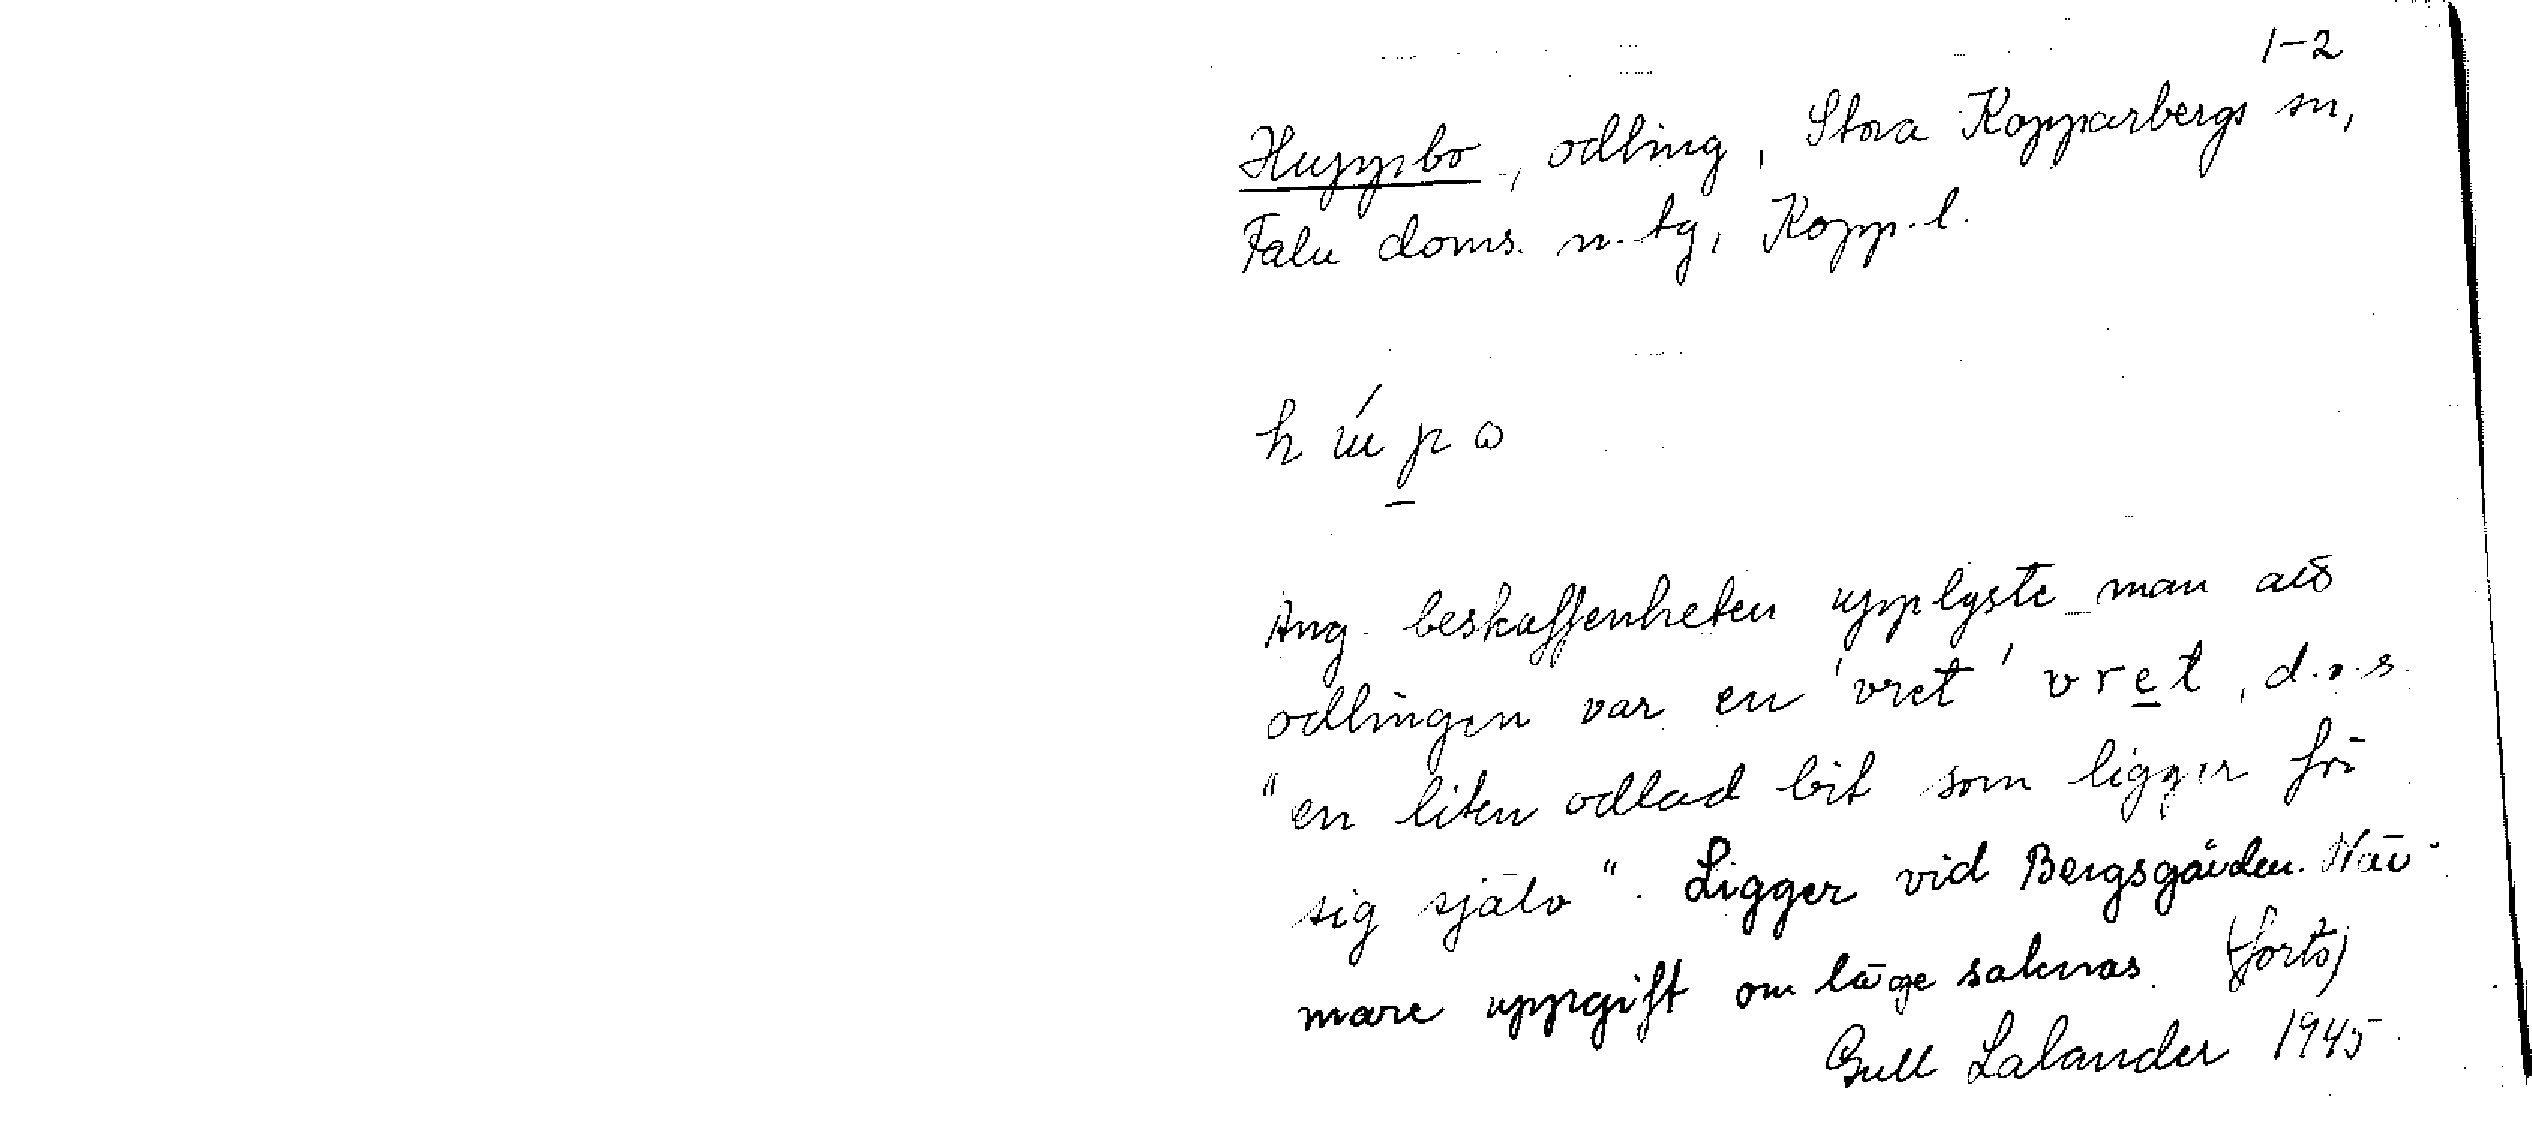 1-2
Huppbo, odling, Stora Kopparbergs sn,
Falu doms. n. tg, Kopp. l.
Ang. beskaffenheten upplyste man att
odlingen var en 'vret' vret, d.v.s.
"en liten odlad bit som ligger för
sig själv". Ligger vid Bergsgården. När-
mare uppgift om läge saknas. (forts)
Gull Lalander 1945.